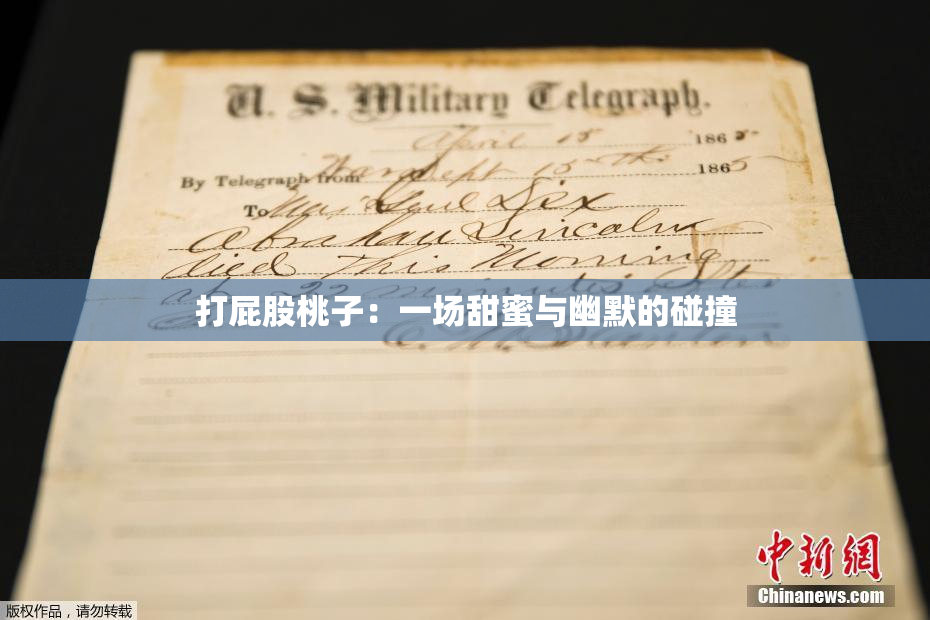 U. S. Military Telegraph.
April 15 1865
By Telegraph from War Dept 15th 1865
To Maj Genl Dix
Abraham Lincoln
died This Morning
at 22 minutes after
打屁股桃子：一场甜蜜与幽默的碰撞
E. M. Stanton
中新网
Chinanews.com
版权作品，请勿转载